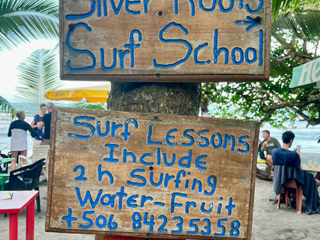 Silver. Roots
Surf School
Surf Lessons
Include
2h Surfing
Water-Fruit
+506 84235358